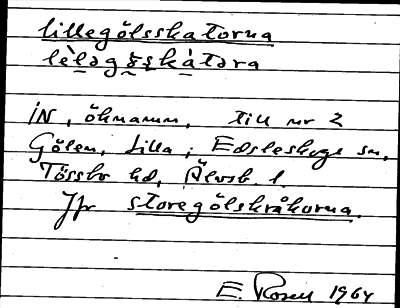 lillegölsskatorna
lèləgö̀şkàtəra
IN, öknamn, till nr 2
Gölen, Lilla, Edsleskogs sn,
Tössbo hd, Älvsb. l.
Jfr storegölskråkorna.
E. Rosell 1964